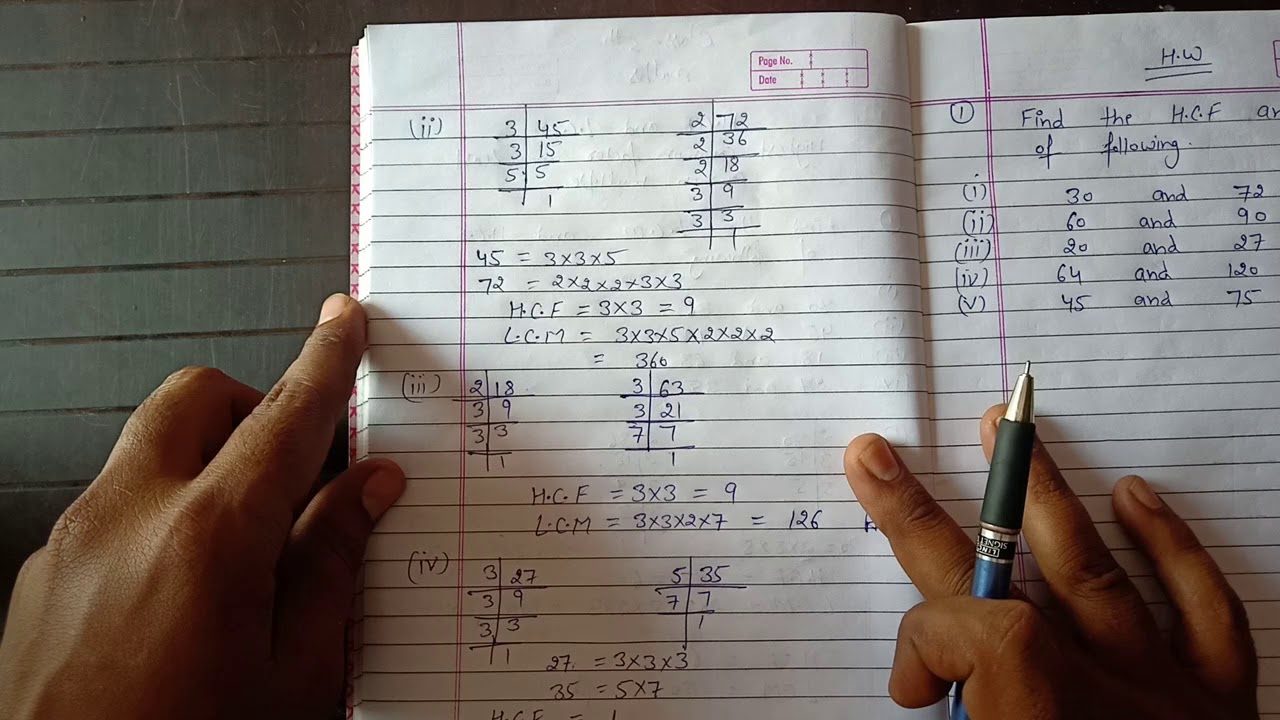 Page No.
Date
(ii)
3 | 45
3 | 15
5 | 5
1
2 | 72
2 | 36
2 | 18
3 | 9
3 | 3
1
45 = 3×3×5
72 = 2×2×2×3×3
H.C.F = 3×3 = 9
L.C.M = 3×3×5×2×2×2
= 360
(iii)
2 | 18
3 | 9
3 | 3
1
3 | 63
3 | 21
7 | 7
1
H.C.F = 3×3 = 9
L.C.M = 3×3×2×7 = 126
(iv)
3 | 27
3 | 9
3 | 3
1
5 | 35
7 | 7
1
27 = 3×3×3
35 = 5×7
H.C.F = 1
H.W
① Find the H.C.F
of following.
(i) 30 and 72
(ii) 60 and 90
(iii) 20 and 27
(iv) 64 and 120
(v) 45 and 75
LINC
SIGNET